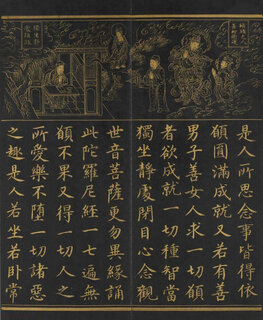 是人所思念事皆得依
願圓滿成就又若有善
男子善女人求一切願
者欲成就一切種智當
獨坐靜處閉目心念觀
世音菩薩更勿異緣誦
此陀羅尼經一七遍無
願不果又得一切人之
所愛樂不墮一切諸惡
之趣是人若坐若臥常